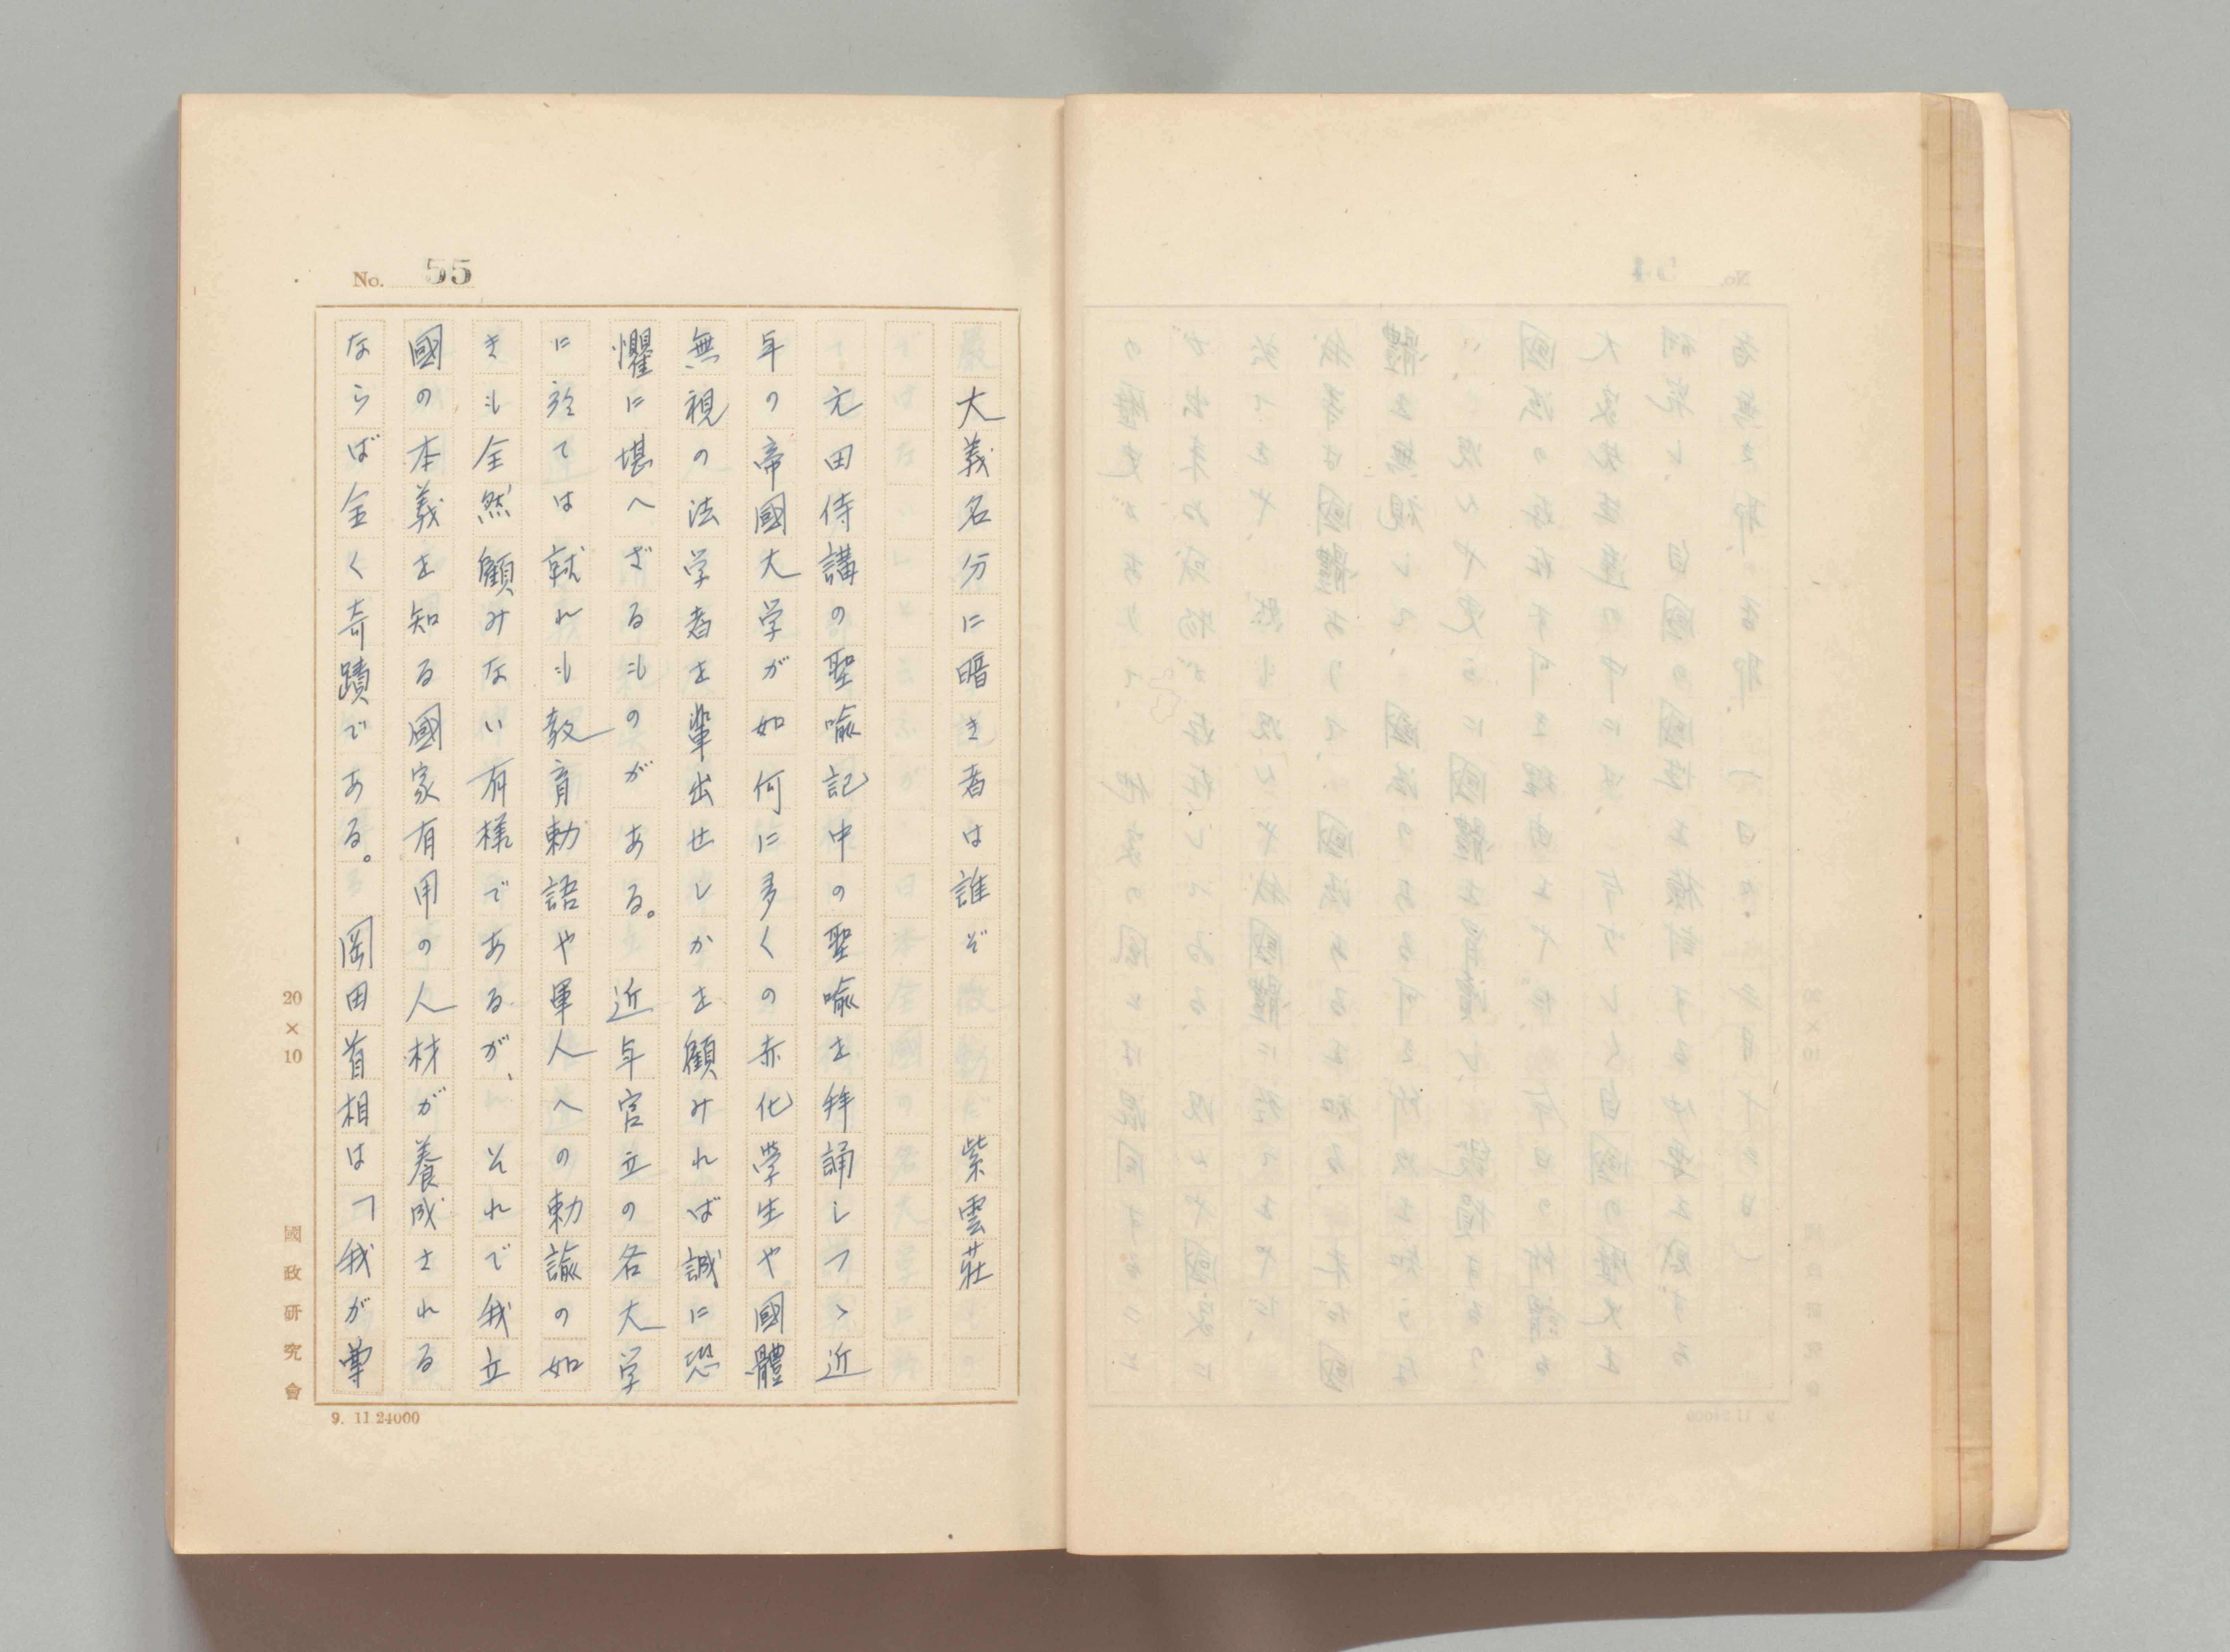 No. 55
大義名分に暗き者は誰ぞ 紫雲莊
元田侍講の聖喩記中の聖喩を拜誦しつゝ近
年の帝國大学が如何に多くの赤化學生や國體
無視の法学者を輩出せしかを顧みれば誠に恐
懼に堪へざるものがある。近年官立の各大学
に於ては就れも教育勅語や軍人への勅諭の如
きも全然顧みない有様であるが、それで我立
國の本義を知る國家有用の人材が養成される
ならば全く奇蹟である。岡田首相は「我が尊
20×10
國政研究會
9. 11 24000